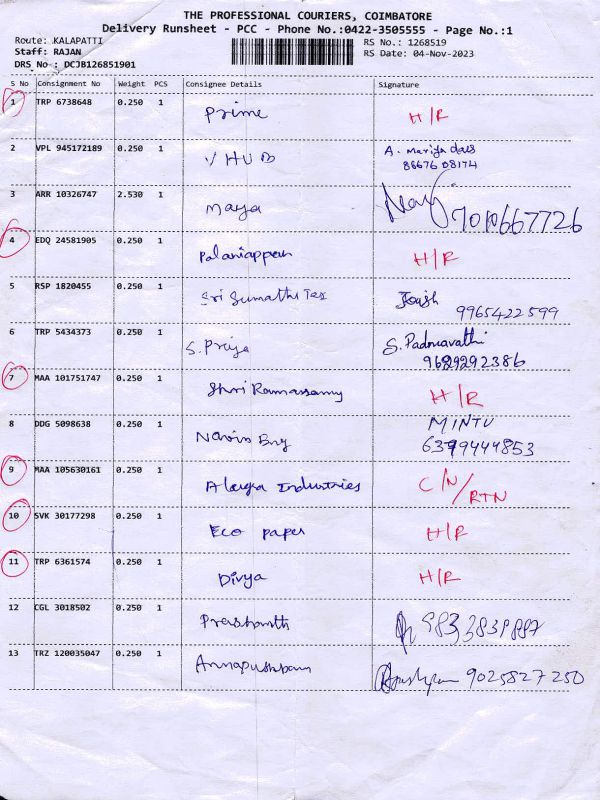 THE PROFESSIONAL COURIERS, COIMBATORE
Delivery Runsheet - PCC - Phone No.:0422-3505555 - Page No.:1
Route: KALAPATTI
Staff: RAJAN
DRS No : DCJB126851901
RS No.: 1268519
RS Date: 04-Nov-2023
S No Consignment No Weight PCS Consignee Details Signature
1 TRP 6738648 0.250 1 Prime H/R
2 VPL 945172189 0.250 1 V HUB A. Mariya das
86676 08174
3 ARR 10326747 2.530 1 Maya 7010667726
4 EDQ 24581905 0.250 1 Palaniappan H/R
5 RSP 1820455 0.250 1 Sri Sumathi Tex
9965422599
6 TRP 5434373 0.250 1 S. Priya S. Padmavathi
9629292386
7 MAA 101751747 0.250 1 Shri Ramasamy H/R
8 DDG 5098638 0.250 1 MINTU
6379444853
9 MAA 105630161 0.250 1 Industries C/N/RTN
10 SVK 30177298 0.250 1 Eco paper H/R
11 TRP 6361574 0.250 1 Divya H/R
12 CGL 3018502 0.250 1 Prashanth
13 TRZ 120035047 0.250 1 Annapushpam 9025827250